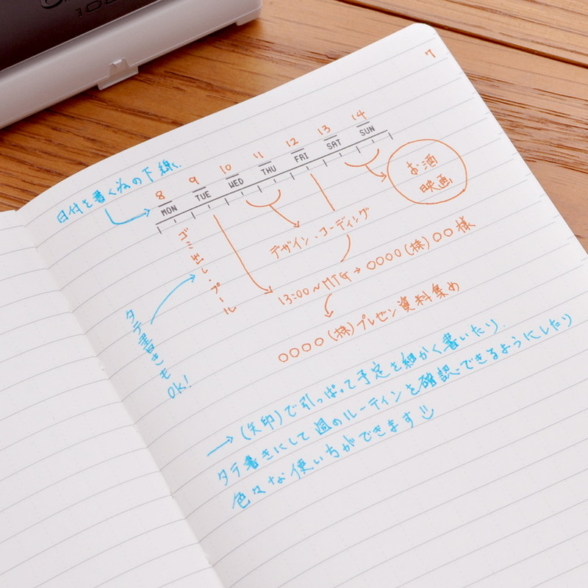 7
日付を書く為の下線、
8 9 10 11 12 13 14
MON TUE WED THU FRI SAT SUN
お酒
映画
ゴミ出し・プール
デザイン・コーディング
13:00~MTG→○○○○(株)○○様
○○○○(株)プレゼン資料集め
タテ書きも
OK!
→(矢印)で引っぱって予定を細かく書いたり
タテ書きにして週のルーティンを確認できるようにしたり
色々な使い方ができます